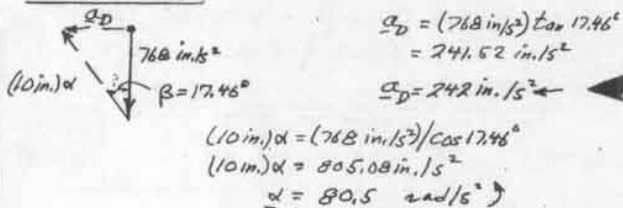 a_D
768 in./s²
(10 in.)α
β = 17.46°
a_D = (768 in/s²) tan 17.46°
= 241.52 in./s²
a_D = 242 in./s² ←
(10 in.)α = (768 in./s²)/cos 17.46°
(10 in.)α = 805.08 in./s²
α = 80.5 rad/s²